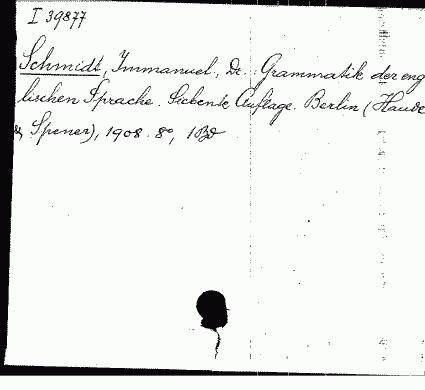 I 39877
Schmidt, Immanuel, Dr.: Grammatik der eng
lischen Sprache. Siebente Auflage. Berlin (Haude
& Spener), 1908. 8°, 1 Bd